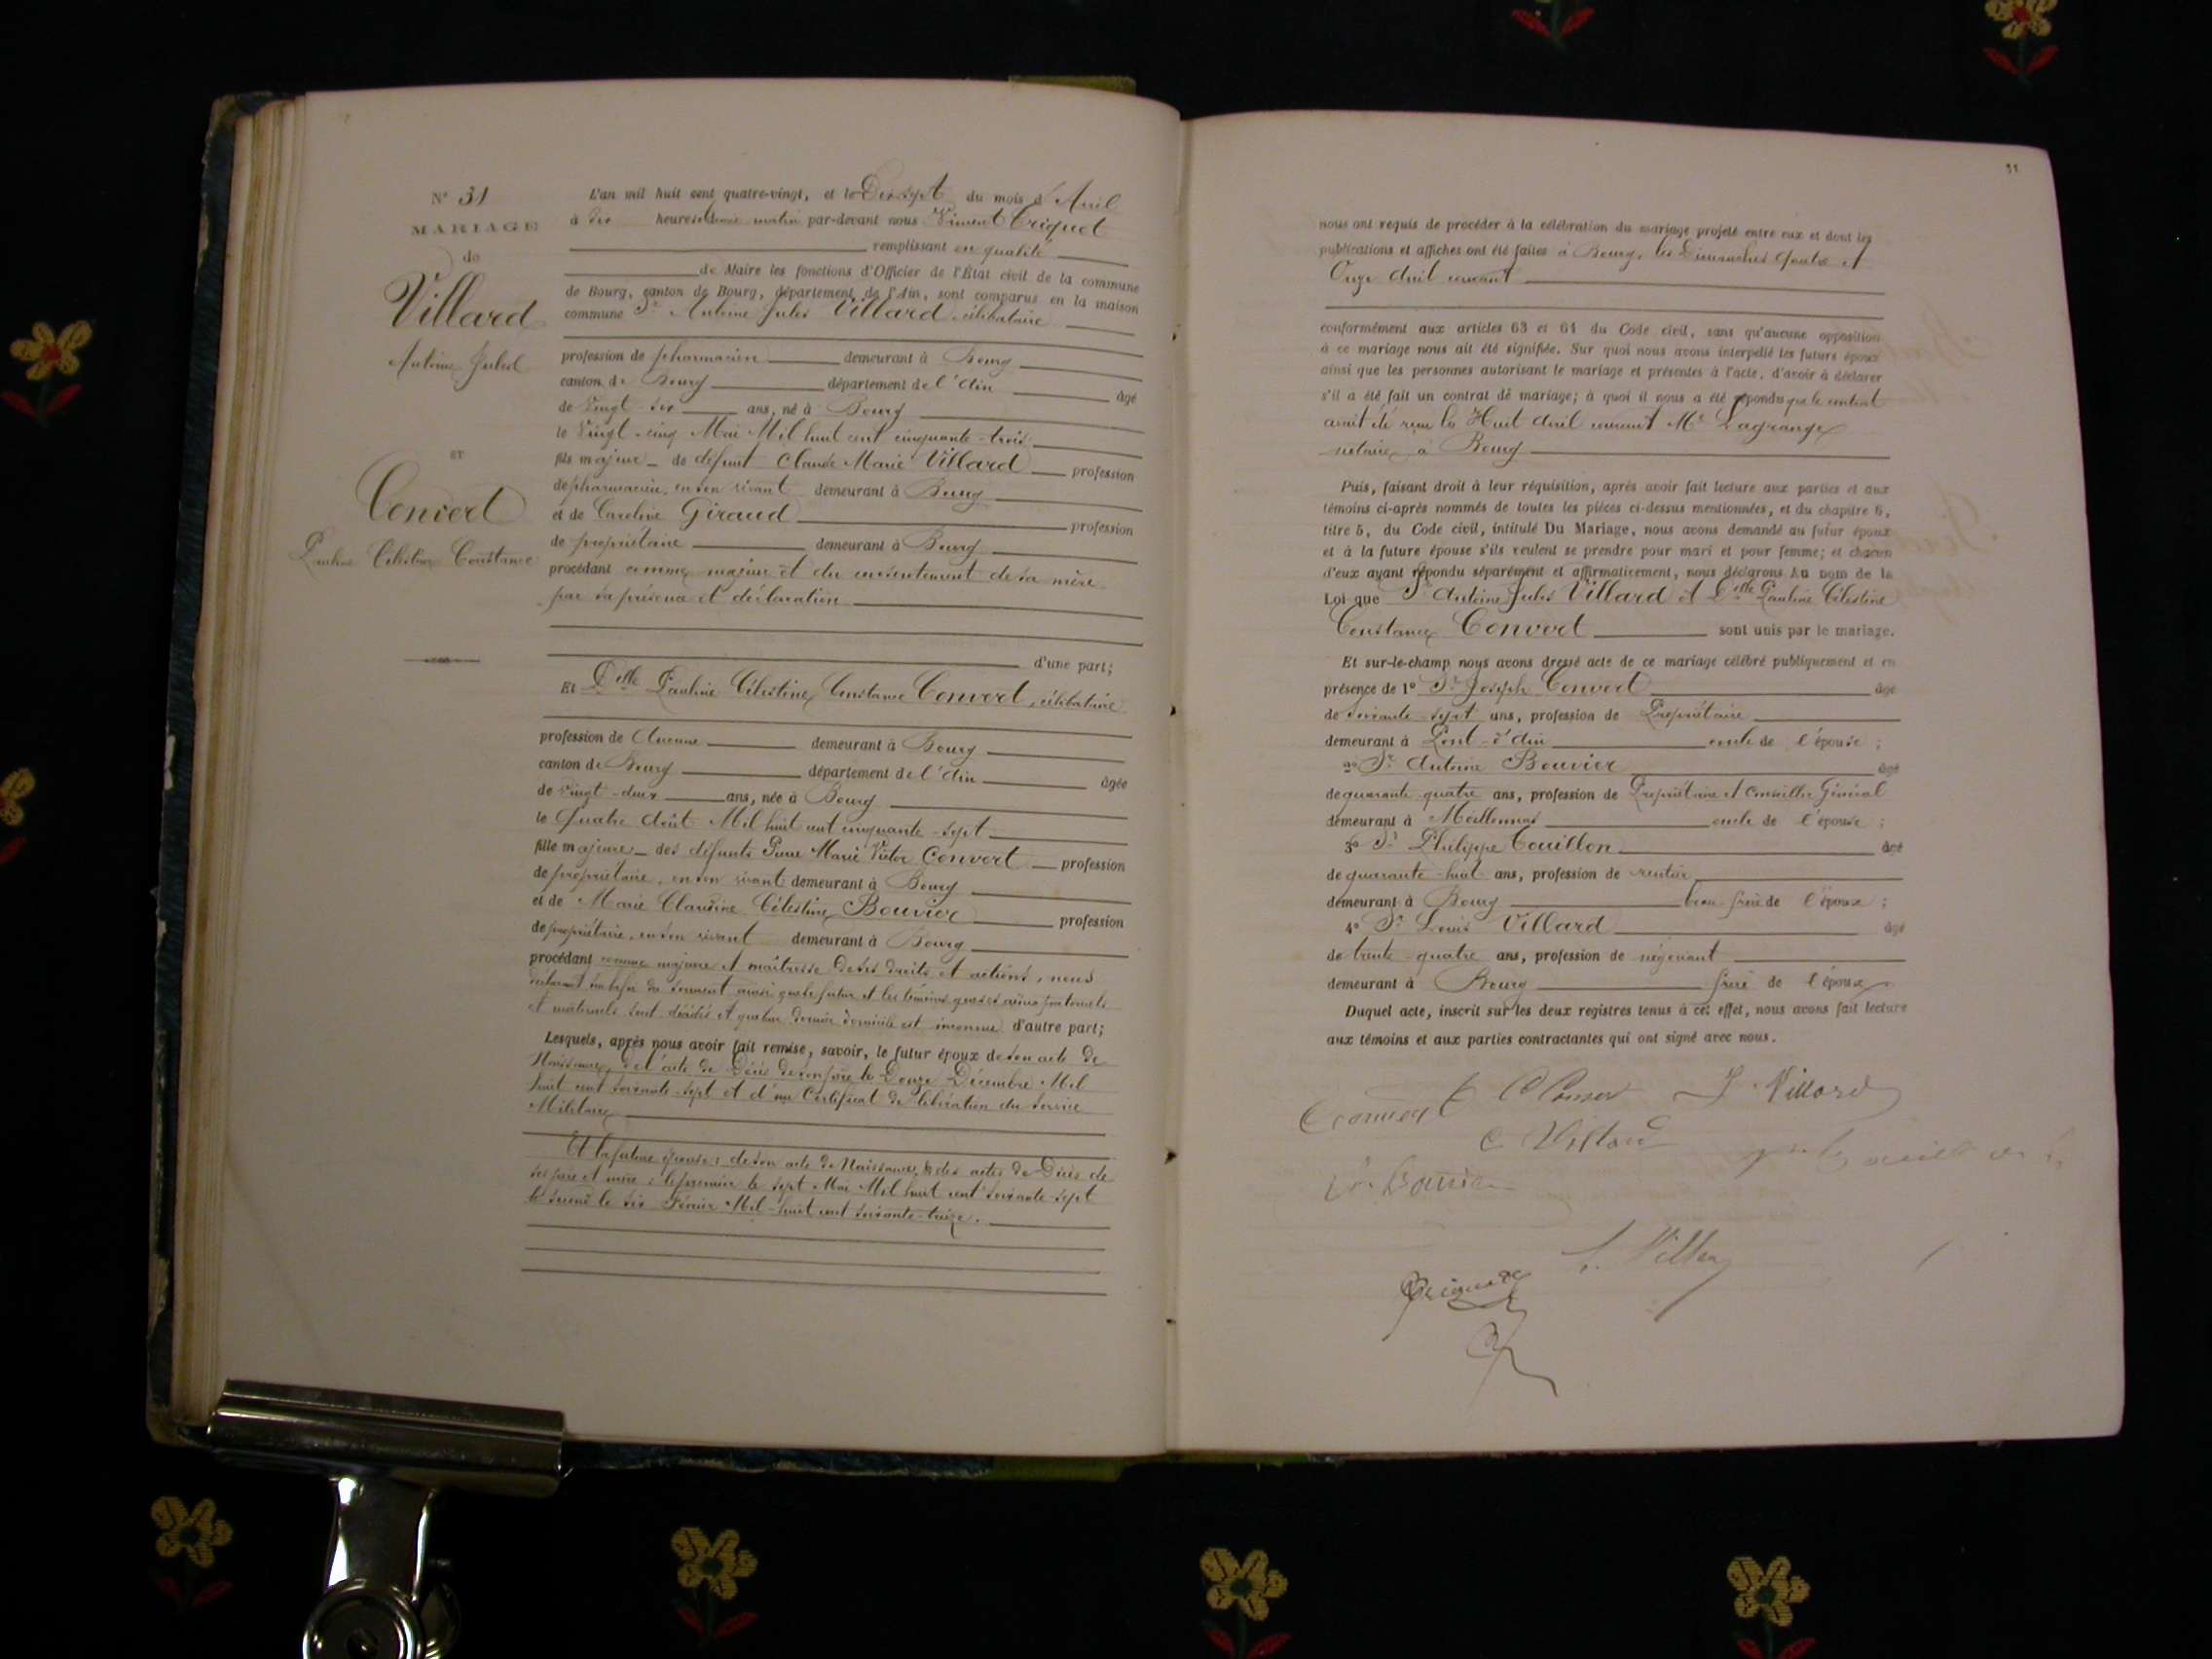 N° 31
MARIAGE
de
Villard
Antoine Jules
ET
Convert
Pauline Célestine Constance
L'an mil huit cent quatre-vingt, et le Dix sept du mois d'Avril
à dix heures du matin par-devant nous Vincent Criquet
remplissant en qualité
de Maire les fonctions d'Officier de l'État civil de la commune
de Bourg, canton de Bourg, département de l'Ain, sont comparus en la maison
commune Sr Antoine Jules Villard, célibataire
profession de pharmacien demeurant à Bourg
canton de Bourg département de l'Ain âgé
de Vingt-six ans, né à Bourg
le Vingt-cinq Mai Mil huit cent cinquante-trois
fils majeur de défunt Claude Marie Villard profession
de pharmacien, en son vivant demeurant à Bourg
et de Caroline Giraud profession
de propriétaire demeurant à Bourg
procédant comme majeur et du consentement de sa mère
par sa présence et déclaration
d'une part;
Et Delle Pauline Célestine Constance Convert, célibataire
profession de Aucune demeurant à Bourg
canton de Bourg département de l'Ain âgée
de Vingt-deux ans, née à Bourg
le Quatre Août Mil huit cent cinquante-sept
fille majeure des défunts Pierre Marie Victor Convert profession
de propriétaire, en son vivant demeurant à Bourg
et de Marie Claudine Célestine Bouvier profession
de propriétaire, en son vivant demeurant à Bourg
procédant comme majeure et maîtresse de ses droits et actions, nous
déclarant sous la foi du serment ainsi que le futur et les témoins que ses aïeux paternels
et maternels sont décédés et que leur dernier domicile est inconnu d'autre part;
Lesquels, après nous avoir fait remise, savoir, le futur époux de son acte de
Naissance, de l'acte de Décès de son père le Douze Décembre Mil
huit cent soixante-sept et d'un Certificat de libération du Service
Militaire
Et la future épouse: de son acte de Naissance, & des actes de Décès de
ses père et mère: le premier le sept Mai Mil huit cent soixante-sept
le second le six Février Mil-huit cent soixante-treize.
31
nous ont requis de procéder à la célébration du mariage projeté entre eux et dont les
publications et affiches ont été faites à Bourg, les Dimanches Quatre et
Onze Avril courant
conformément aux articles 63 et 64 du Code civil, sans qu'aucune opposition
à ce mariage nous ait été signifiée. Sur quoi nous avons interpellé les futurs époux
ainsi que les personnes autorisant le mariage et présentes à l'acte, d'avoir à déclarer
s'il a été fait un contrat de mariage; à quoi il nous a été répondu que le contrat
avait été reçu le Huit Avril courant Me Lagrange
notaire à Bourg
Puis, faisant droit à leur réquisition, après avoir fait lecture aux parties et aux
témoins ci-après nommés de toutes les pièces ci-dessus mentionnées, et du chapitre 6,
titre 5, du Code civil, intitulé Du Mariage, nous avons demandé au futur époux
et à la future épouse s'ils veulent se prendre pour mari et pour femme; et chacun
d'eux ayant répondu séparément et affirmativement, nous déclarons Au nom de la
Loi que Sr Antoine Jules Villard et Delle Pauline Célestine
Constance Convert sont unis par le mariage.
Et sur-le-champ nous avons dressé acte de ce mariage célébré publiquement et en
présence de 1° Sr Joseph Convert âgé
de soixante-sept ans, profession de Propriétaire
demeurant à Pont-d'Ain oncle de l'épouse;
2° Sr Antoine Bouvier âgé
de quarante-quatre ans, profession de Propriétaire et Conseiller Général
demeurant à Meillonnas oncle de l'épouse;
3° Sr Philippe Couillon âgé
de quarante-huit ans, profession de rentier
demeurant à Bourg beau-frère de l'époux;
4° Sr Louis Villard âgé
de trente-quatre ans, profession de négociant
demeurant à Bourg frère de l'époux
Duquel acte, inscrit sur les deux registres tenus à cet effet, nous avons fait lecture
aux témoins et aux parties contractantes qui ont signé avec nous.
Convert J Villard
C. Villard